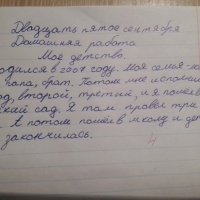 Двадцать пятое сентября
Домашняя работа
Мое детство
одился в 2007 году. Моя семья
папа, брат. Потом мне исполни
од, второй, третий, и я пошел в
ский сад. Я там провел три
А потом пошел в школу и де
закончилась.
4